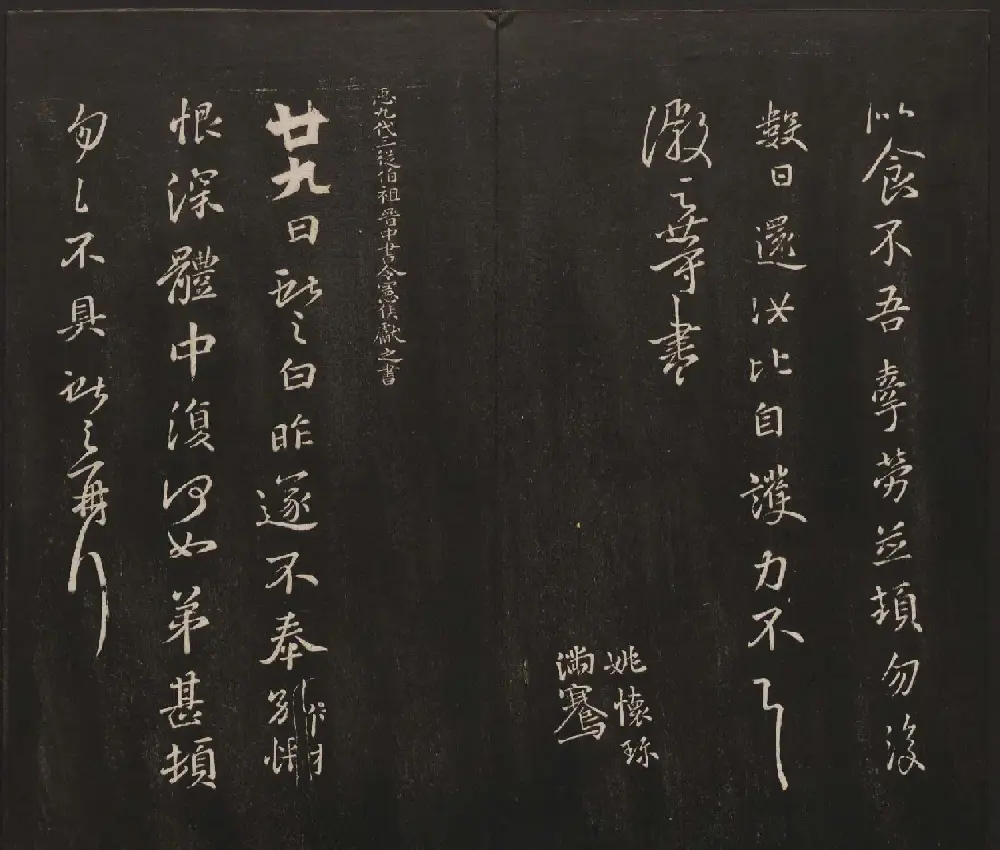 以食不吾牽勞並頓勿復
數日還汝比自護力不
徽之等書
姚懷珍
滿騫
九代三從伯祖晉中書令憲侯獻之書
廿九日獻之白昨遂不奉別悵
恨深體中復何如弟甚頓
匆匆不具獻之再拜